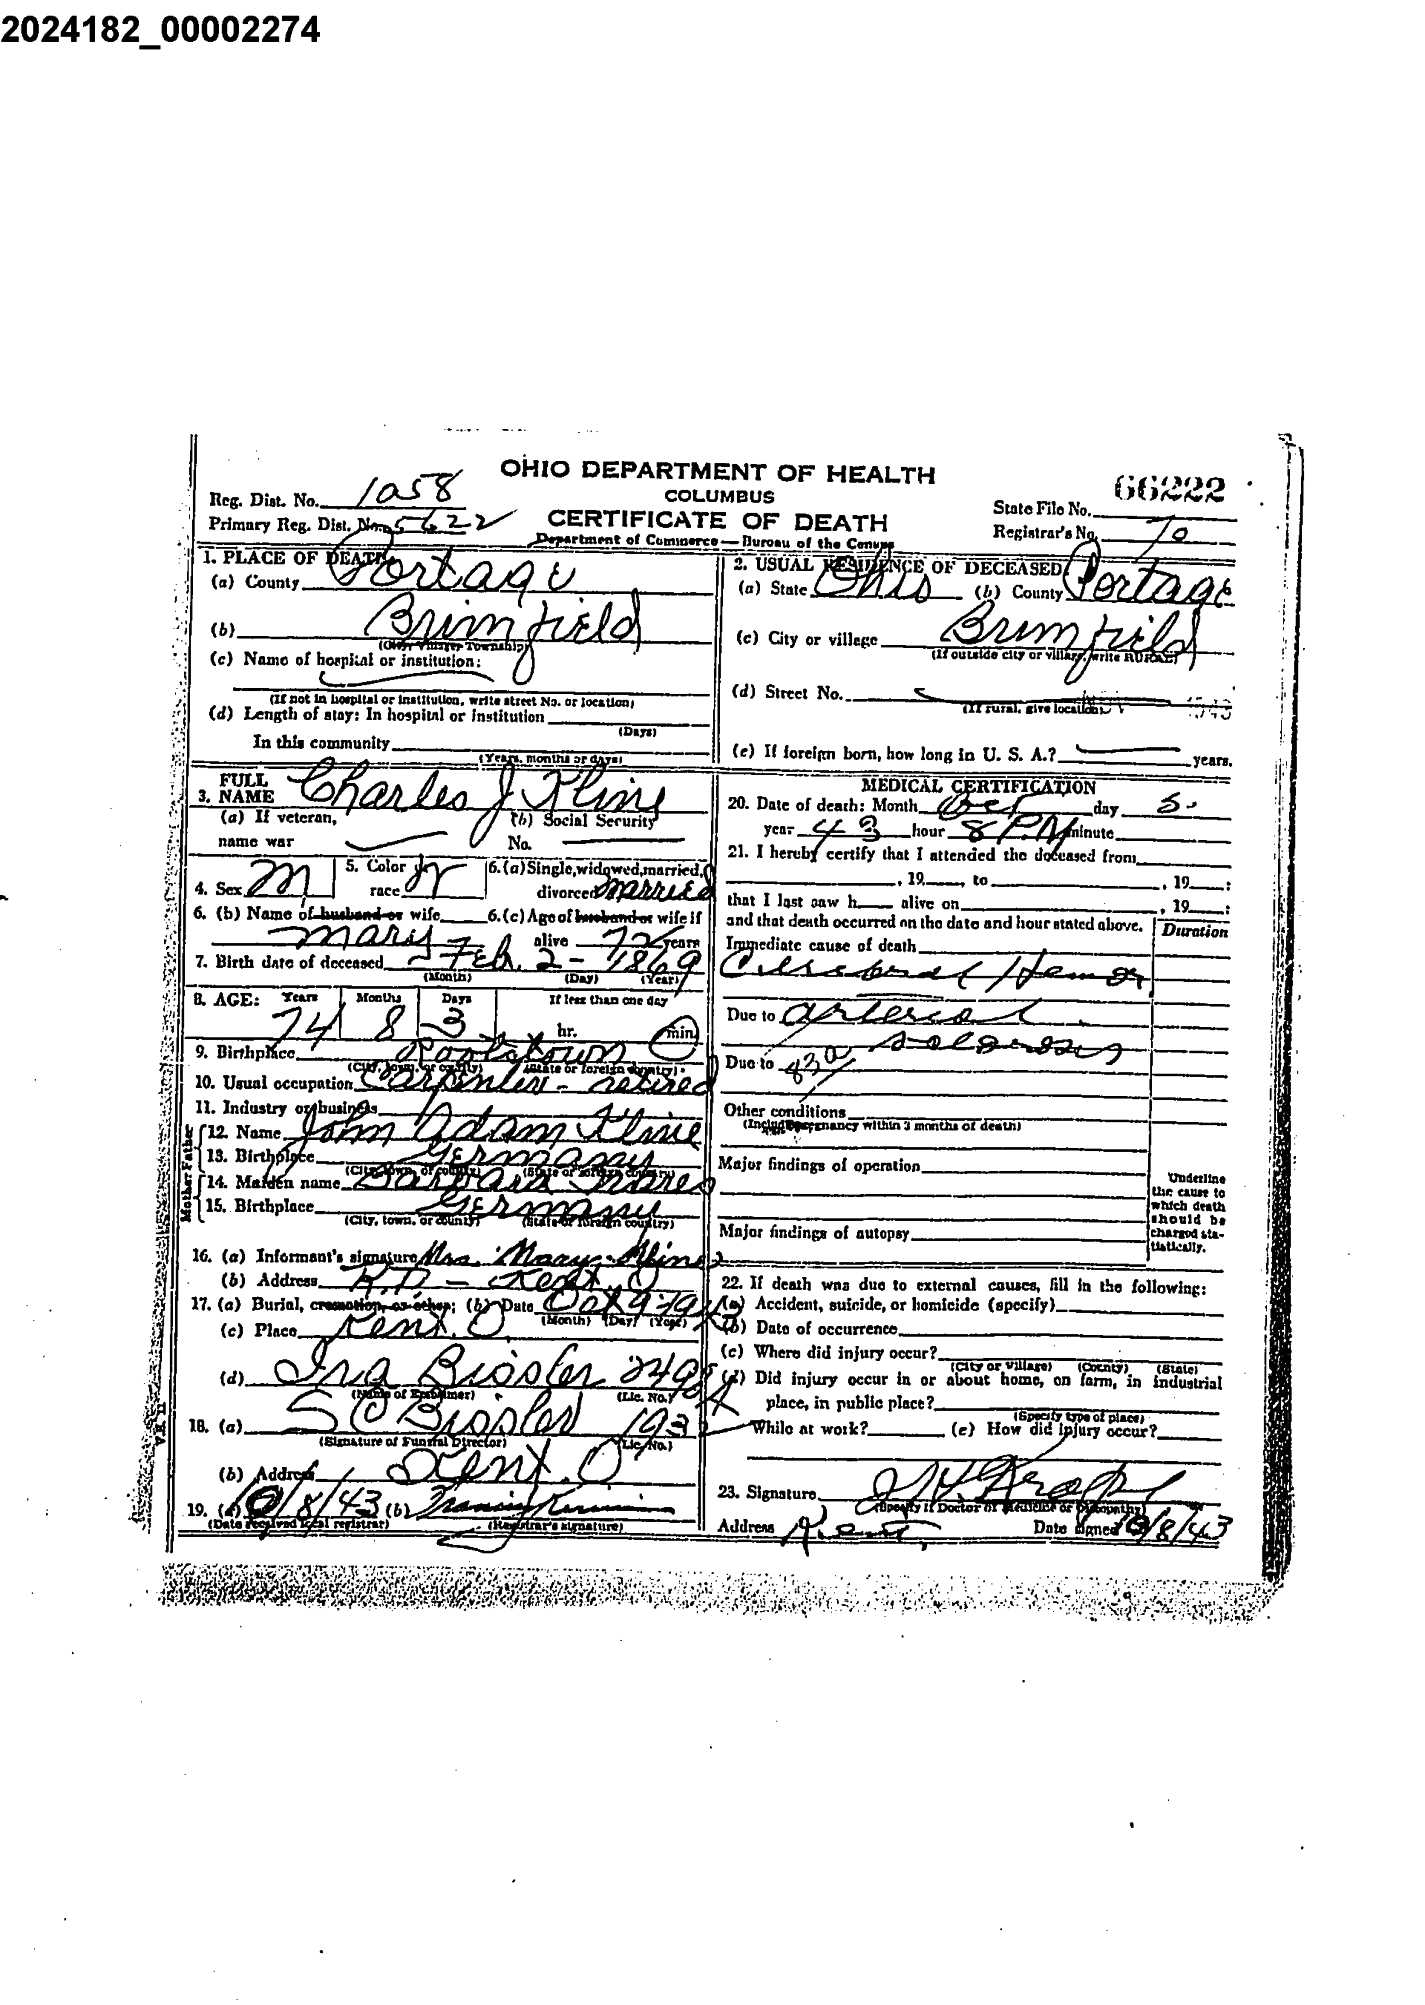 2024182_00002274
OHIO DEPARTMENT OF HEALTH
COLUMBUS
CERTIFICATE OF DEATH
Department of Commerce — Bureau of the Census
Reg. Dist. No. 1058
Primary Reg. Dist. No. 5622
State File No. 66222
Registrar's No. 70
1. PLACE OF DEATH
(a) County Portage
(b) Brimfield
(City, Village, Township)
(c) Name of hospital or institution:
(If not in hospital or institution, write street No. or location)
(d) Length of stay: In hospital or institution
(Days)
In this community
(Years, months or days)
2. USUAL RESIDENCE OF DECEASED
(a) State Ohio (b) County Portage
(c) City or village Brimfield
(If outside city or village, write RURAL)
(d) Street No.
(If rural, give location)
(e) If foreign born, how long in U. S. A.? years.
3. FULL NAME Charles J Kline
(a) If veteran, name war
(b) Social Security No.
4. Sex M
5. Color or race W
6. (a) Single, widowed, married, divorced Married
6. (b) Name of husband or wife Mary
6. (c) Age of husband or wife if alive 72 years
7. Birth date of deceased Feb. 2 - 1869
(Month) (Day) (Year)
8. AGE: Years Months Days If less than one day
74 8 3 hr. min.
9. Birthplace Rootstown
(City, town, or county) (State or foreign country)
10. Usual occupation Carpenter - retired
11. Industry or business
Father
12. Name John Adam Kline
13. Birthplace Germany
(City, town, or county) (State or foreign country)
Mother
14. Maiden name Barbara
15. Birthplace Germany
(City, town, or county) (State or foreign country)
16. (a) Informant's signature Mrs. Mary Kline
(b) Address R.D. - Kent, O
17. (a) Burial, cremation, or other; (b) Date Oct 9-1943
(Month) (Day) (Year)
(c) Place Kent, O.
(d) Ira Bissler 2498A
(Name of Embalmer) (Lic. No.)
18. (a) S C Bissler 1932
(Signature of Funeral Director) (Lic. No.)
(b) Address Kent, O
19. (a) 10/8/43 (b) Francis
(Date received local registrar) (Registrar's signature)
MEDICAL CERTIFICATION
20. Date of death: Month Oct day 5-
year 43 hour 8 P.M minute
21. I hereby certify that I attended the deceased from
, 19 , to , 19 :
that I last saw h alive on , 19 :
and that death occurred on the date and hour stated above.
Duration
Immediate cause of death
Cerebral Hemor
Due to arterial
sclerosis
Due to 83a
Other conditions
(Include pregnancy within 3 months of death)
Major findings of operation
Major findings of autopsy
Underline
the cause to
which death
should be
charged sta-
tistically.
22. If death was due to external causes, fill in the following:
(a) Accident, suicide, or homicide (specify)
(b) Date of occurrence
(c) Where did injury occur?
(City or village) (County) (State)
(d) Did injury occur in or about home, on farm, in industrial
place, in public place?
(Specify type of place)
While at work? (e) How did injury occur?
23. Signature
(Specify if Doctor of Medicine or Osteopathy)
Address Kent, Date signed 10/8/43